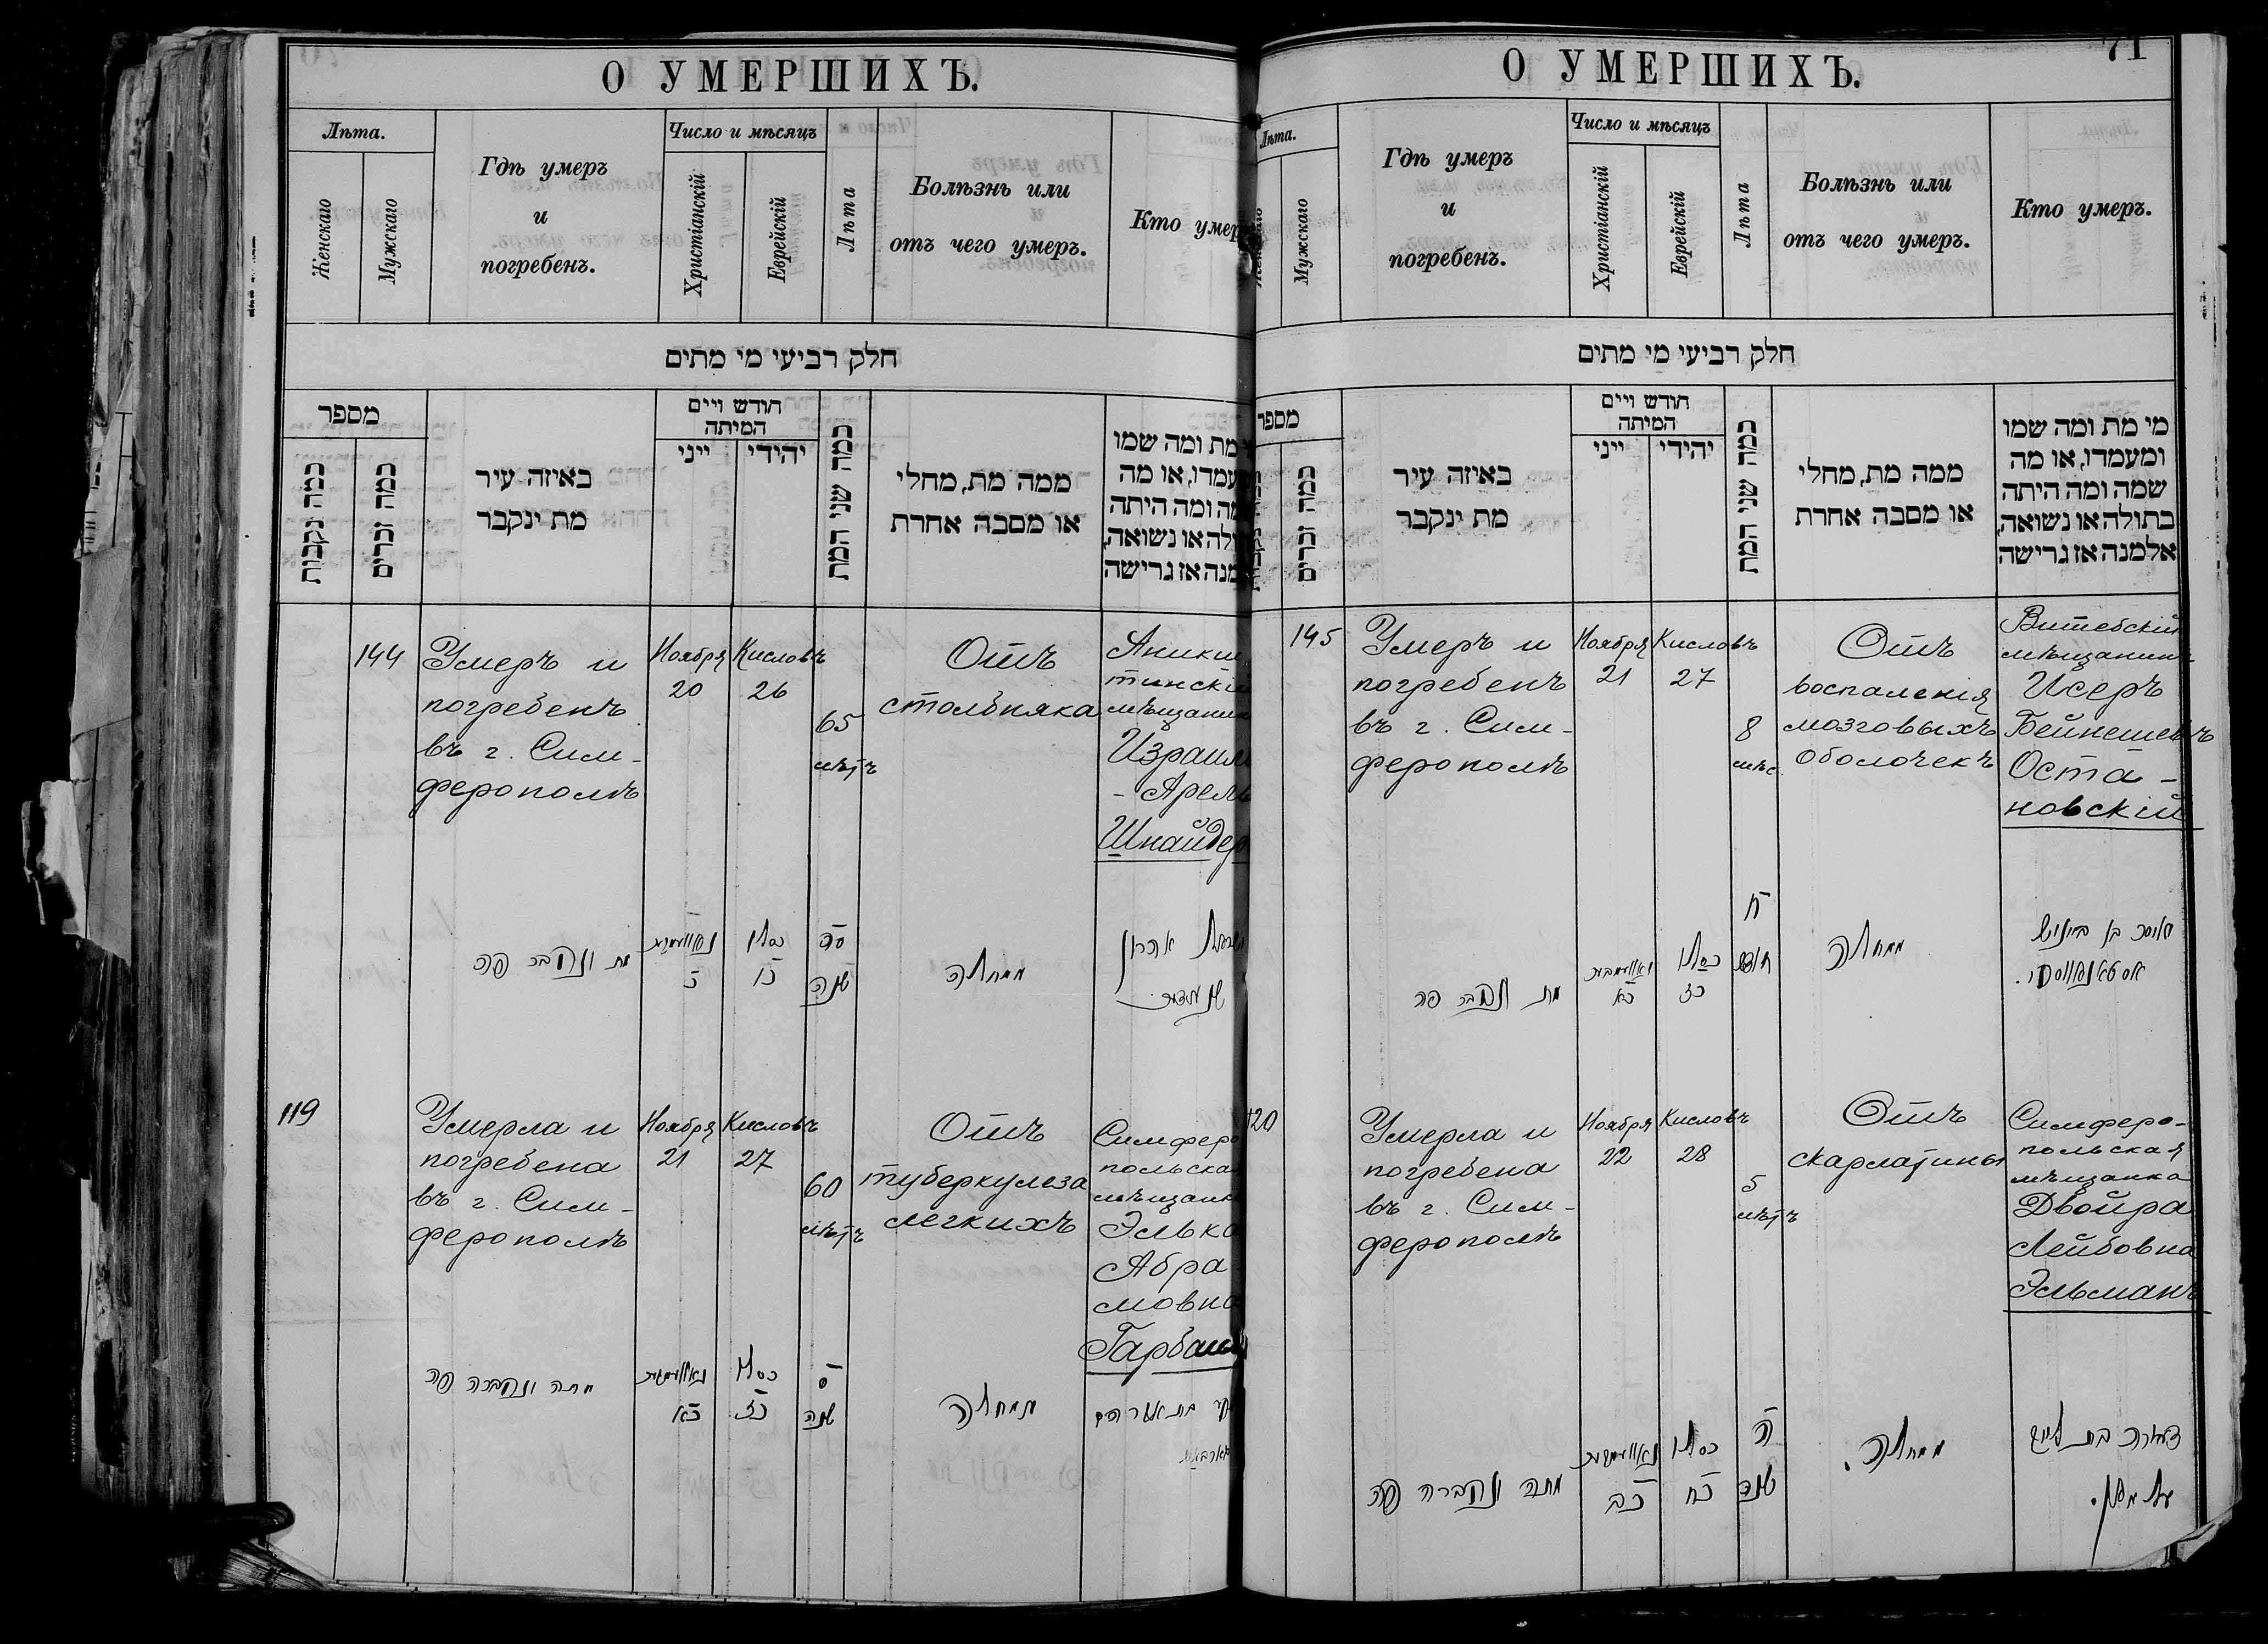 О УМЕРШИХЪ.
Лѣта.
Женскаго
Мужскаго
Гдѣ умеръ
и
погребенъ.
Число и мѣсяцъ
Христіанскій
Еврейскій
Лѣта
Болѣзнь или
отъ чего умеръ.
Кто умер
חלק רביעי מי מתים
מספר
כמה נקבות
כמה זכרים
באיזה עיר
מת ינקבר
חודש ויים
המיתה
ייני
יהידי
כמה שני המת
ממה מת, מחלי
או מסבה אחרת
מת ומה שמו
עמדו, או מה
מה ומה היתה
ולה או נשואה,
מנה אז גרישה
144
Умеръ и
погребенъ
въ г. Сим-
ферополѣ
Ноября
20
Кисловъ
26
65
лѣтъ
Отъ
столбняка
Аники
тинскій
мѣщанин
Израиль
- Арель
Шнайдер
מת ונקבר פה
כסלו
כו
סה
שנה
ממחלה
ישראל אהרון
119
Умерла и
погребена
въ г. Сим-
ферополѣ
Ноября
21
Кисловъ
27
60
лѣтъ
Отъ
туберкулеза
легкихъ
Симферо
польска
мѣщанк
Элька
Абра
мовна
Гарбаш
מתה ונקברה פה
כא
כסלו
כז
ס
שנה
ממחלה
בת אברהם
О УМЕРШИХЪ.
71
Лѣта.
Мужскаго
Гдѣ умеръ
и
погребенъ.
Число и мѣсяцъ
Христіанскій
Еврейскій
Лѣта
Болѣзнь или
отъ чего умеръ.
Кто умеръ.
חלק רביעי מי מתים
מספר
כמה זכרים
באיזה עיר
מת ינקבר
חודש ויים
המיתה
ייני
יהידי
כמה שני המת
ממה מת, מחלי
או מסבה אחרת
מי מת ומה שמו
ומעמדו, או מה
שמה ומה היתה
בתולה או נשואה,
אלמנה אז גרישה
145
Умеръ и
погребенъ
въ г. Сим-
ферополѣ
Ноября
21
Кисловъ
27
8
мѣс.
Отъ
воспаленія
мозговыхъ
оболочекъ
Витебскій
мѣщанинъ
Исеръ
Бейнешевъ
Оста-
новскій
מת ונקבר פה
כא
כסלו
כז
ח
חודש
ממחלה
איסר בן ביינוש
אסטאנאווסקי.
120
Умерла и
погребена
въ г. Сим-
ферополѣ
Ноября
22
Кисловъ
28
5
лѣтъ
Отъ
скарлатины
Симферо-
польская
мѣщанка
Двойра
Лейбовна
Эльманъ
מתה ונקברה פה
כב
כסלו
כח
ה
שנה
ממחלה.
דווירה בת לייב
עלמאן.